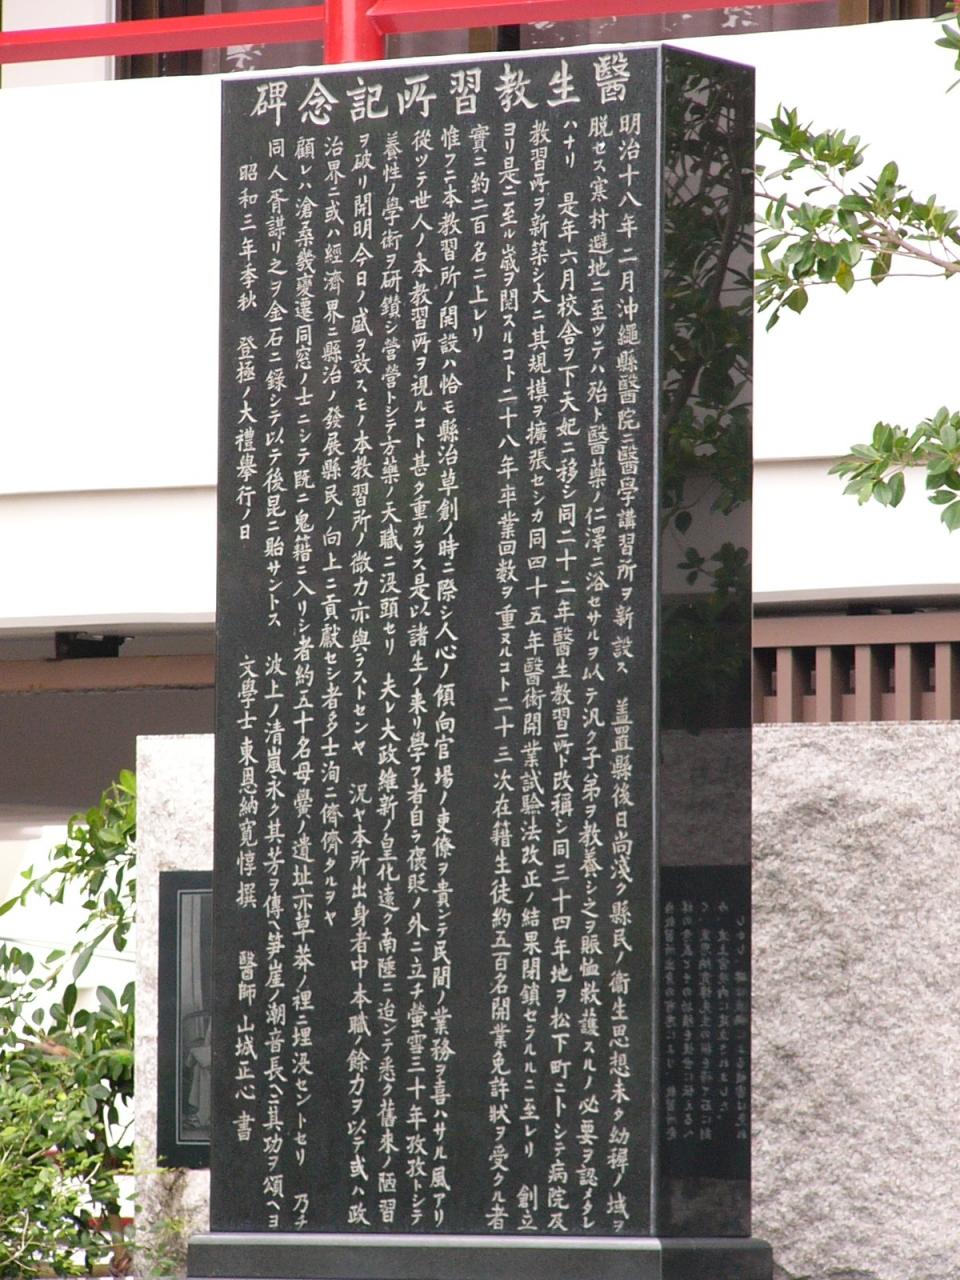 醫生教習所記念碑
明治十八年二月沖繩縣醫院ニ醫學講習所ヲ新設ス 蓋置縣後日尚淺ク縣民ノ衛生思想未タ幼稺ノ域ヲ
脱セス寒村避地ニ至ツテハ殆ト醫藥ノ仁澤ニ浴セサルヲ以テ汎ク子弟ヲ教養シ之ヲ賑恤救護スルノ必要ヲ認メタレ
ハナリ 是年六月校舎ヲ下天妃ニ移シ同二十二年醫生教習所ト改稱シ同三十四年地ヲ松下町ニトシテ病院及
教習所ヲ新築シ大ニ其規模ヲ擴張セシカ同四十五年醫術開業試驗法改正ノ結果閉鎖セラルルニ至レリ 創立
ヨリ是ニ至ル歳ヲ閲スルコト二十八年卒業回數ヲ重ヌルコト二十三次在籍生徒約五百名開業免許狀ヲ受クル者
實ニ約二百名ニ上レリ
惟フニ本教習所ノ開設ハ恰モ縣治草創ノ時ニ際シ人心ノ傾向官場ノ吏僚ヲ貴ンテ民間ノ業務ヲ喜ハサル風アリ
從ツテ世人ノ本教習所ヲ視ルコト甚タ重カラス是以諸生ノ来リ學フ者自ラ褒貶ノ外ニ立チ螢雪三十年孜孜トシテ
養性ノ學術ヲ研鑽シ營營トシテ方藥ノ天職ニ没頭セリ 夫レ大政維新ノ皇化遠ク南陲ニ迨ンテ悉ク舊來ノ陋習
ヲ破リ開明今日ノ盛ヲ效スモノ本教習所ノ微力亦與ラストセンヤ 況ヤ本所出身者中本職ノ餘力ヲ以テ或ハ政
治界ニ或ハ經濟界ニ縣治ノ發展縣民ノ向上ニ貢獻セシ者多士洵ニ儕儕タルヲヤ
顧レハ滄桑幾變遷同窓ノ士ニシテ既ニ鬼籍ニ入リシ者約五十名母黌ノ遺址亦草莽ノ裡ニ埋没セントセリ 乃チ
同人胥謀リ之ヲ金石ニ錄シテ以テ後昆ニ貽サントス 波上ノ清嵐永ク其芳ヲ傳ヘ笋崖ノ潮音長ヘニ其功ヲ頌ヘヨ
昭和三年季秋 登極ノ大禮擧行ノ日 文學士 東恩納寛惇 撰 醫師 山城正心 書